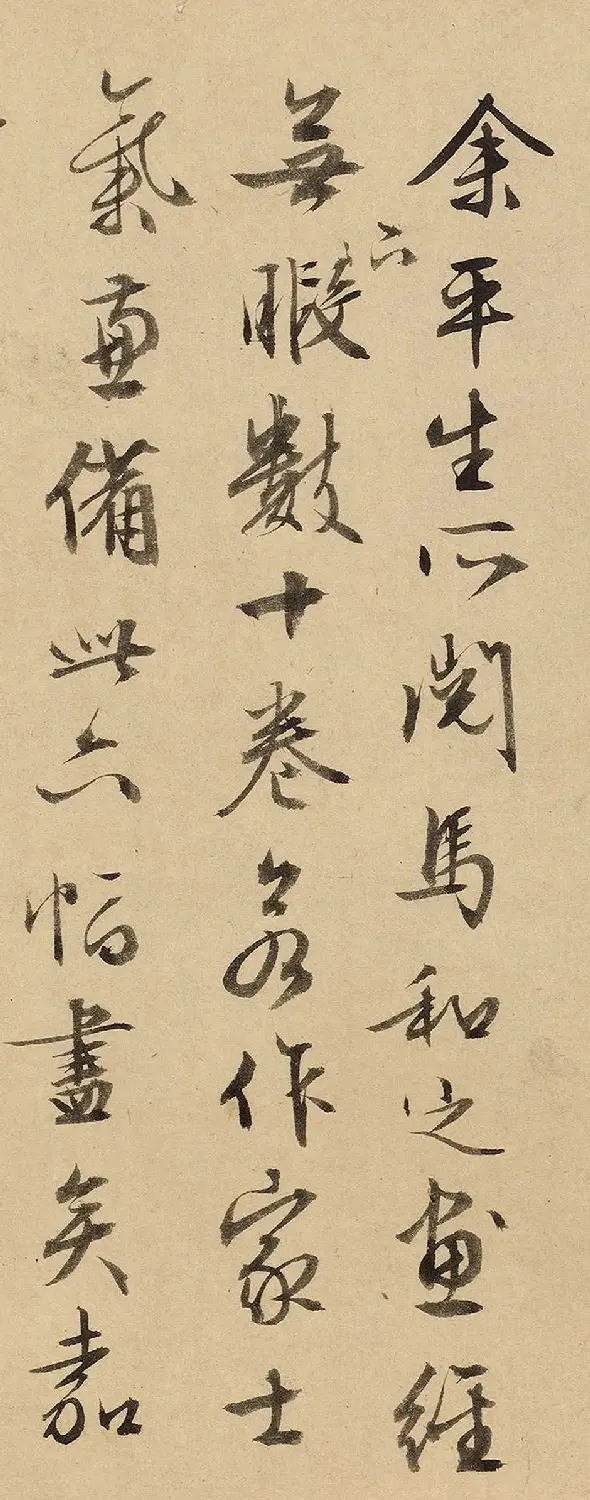 余平生所閱馬和之畫經
無暇數十卷若作家士
氣兼備此六幅盡矣嘉